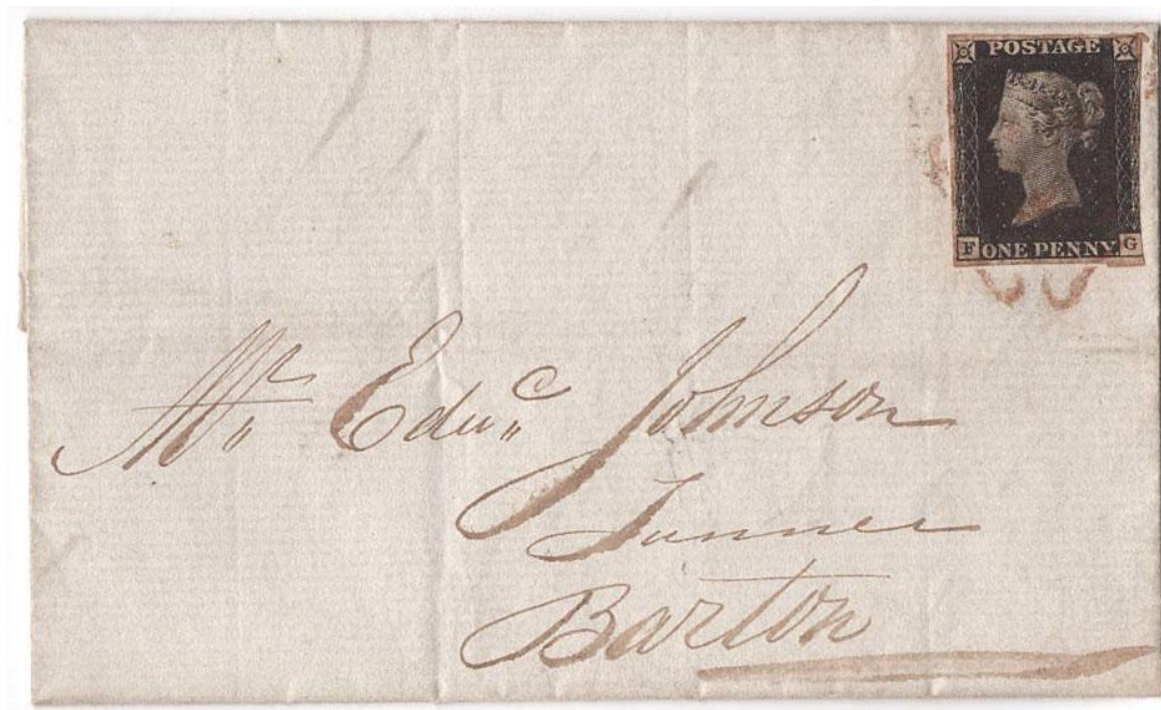 POSTAGE
F ONE PENNY. G
Mr Edwd Johnson
Tanner
Barton